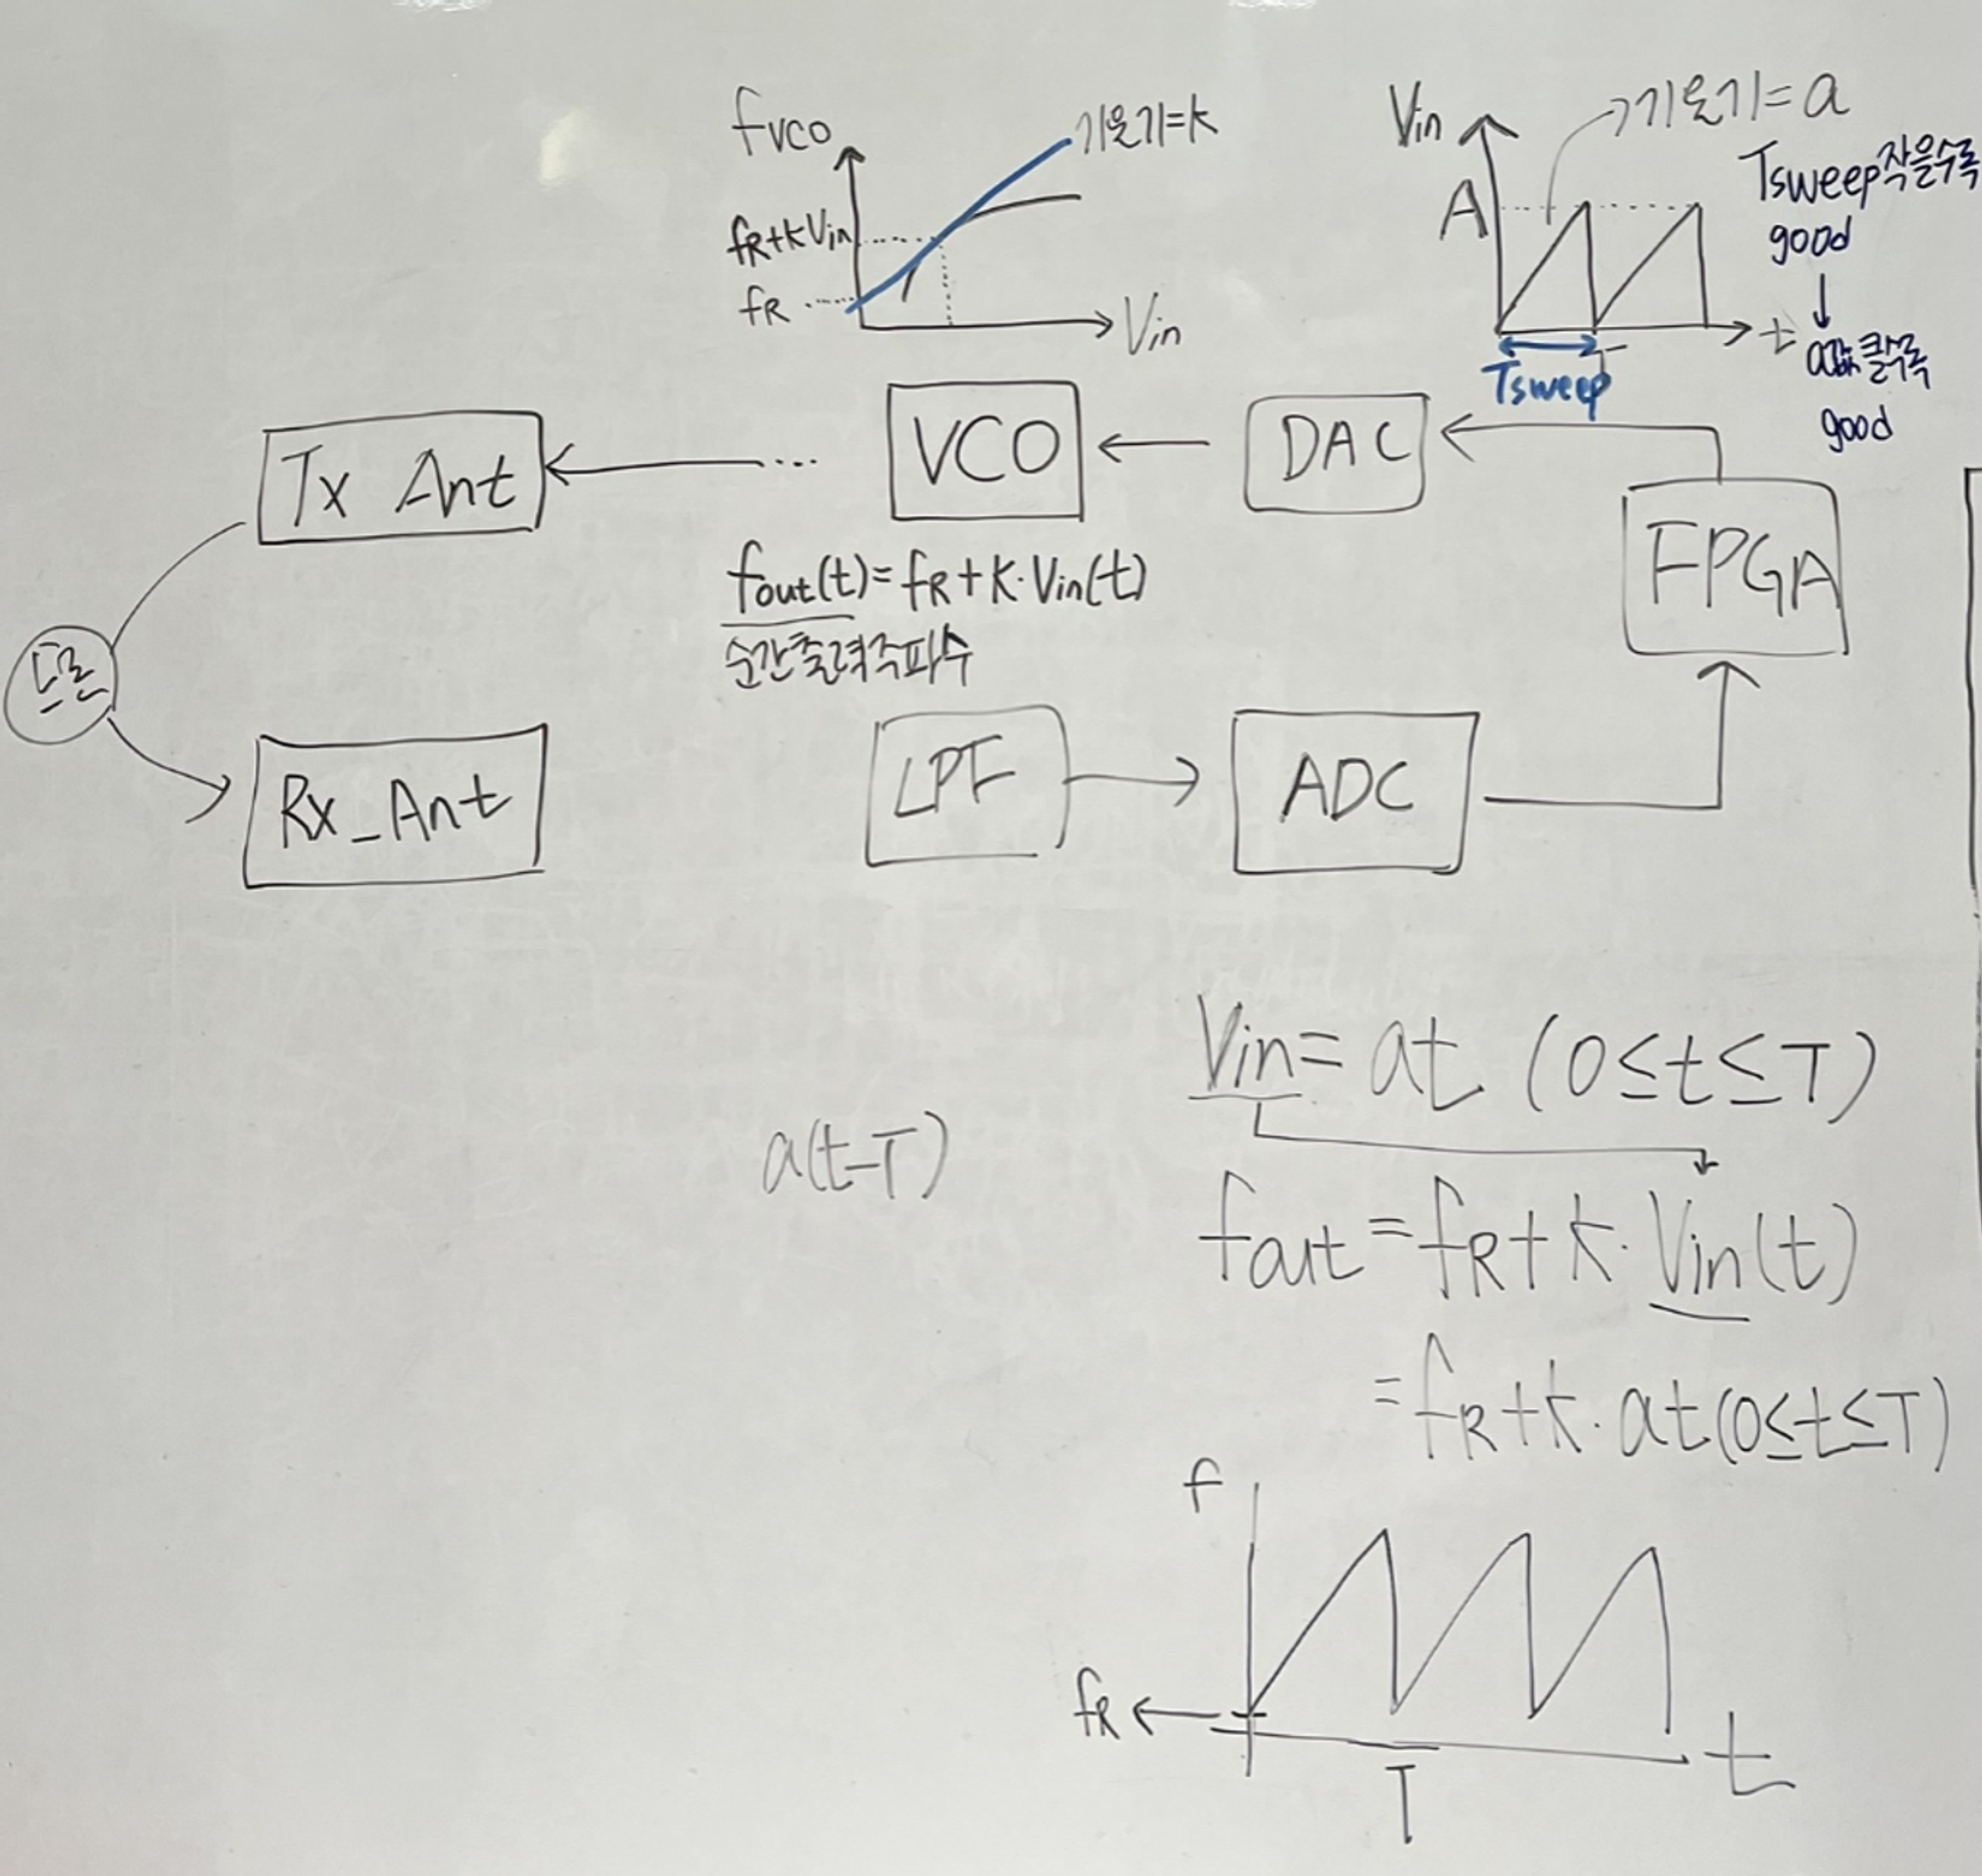 fvco
기울기=k
fR+kVin
fR
Vin
Vin
기울기=a
A
Tsweep작을수록
good
↓
a값 클수록
good
t
T
Tsweep
Tx Ant
VCO
DAC
FPGA
fout(t)=fR+K·Vin(t)
순간출력주파수
드론
Rx_Ant
LPF
ADC
Vin= at (0≤t≤T)
a(t-T)
fout=fR+k·Vin(t)
=fR+k·at(0≤t≤T)
f
fR
t
T